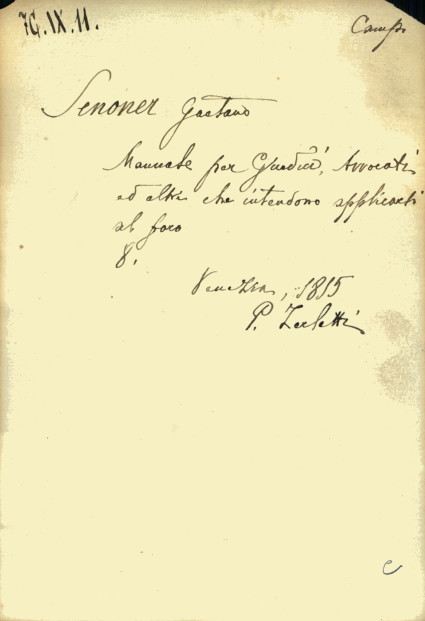 76.IX.11.
Senoner Gaetano
Manuale per Giudici, Avvocati
ed altri che intendono applicarsi
al foro
8.
Venezia, 1815
P. Zerletti
C